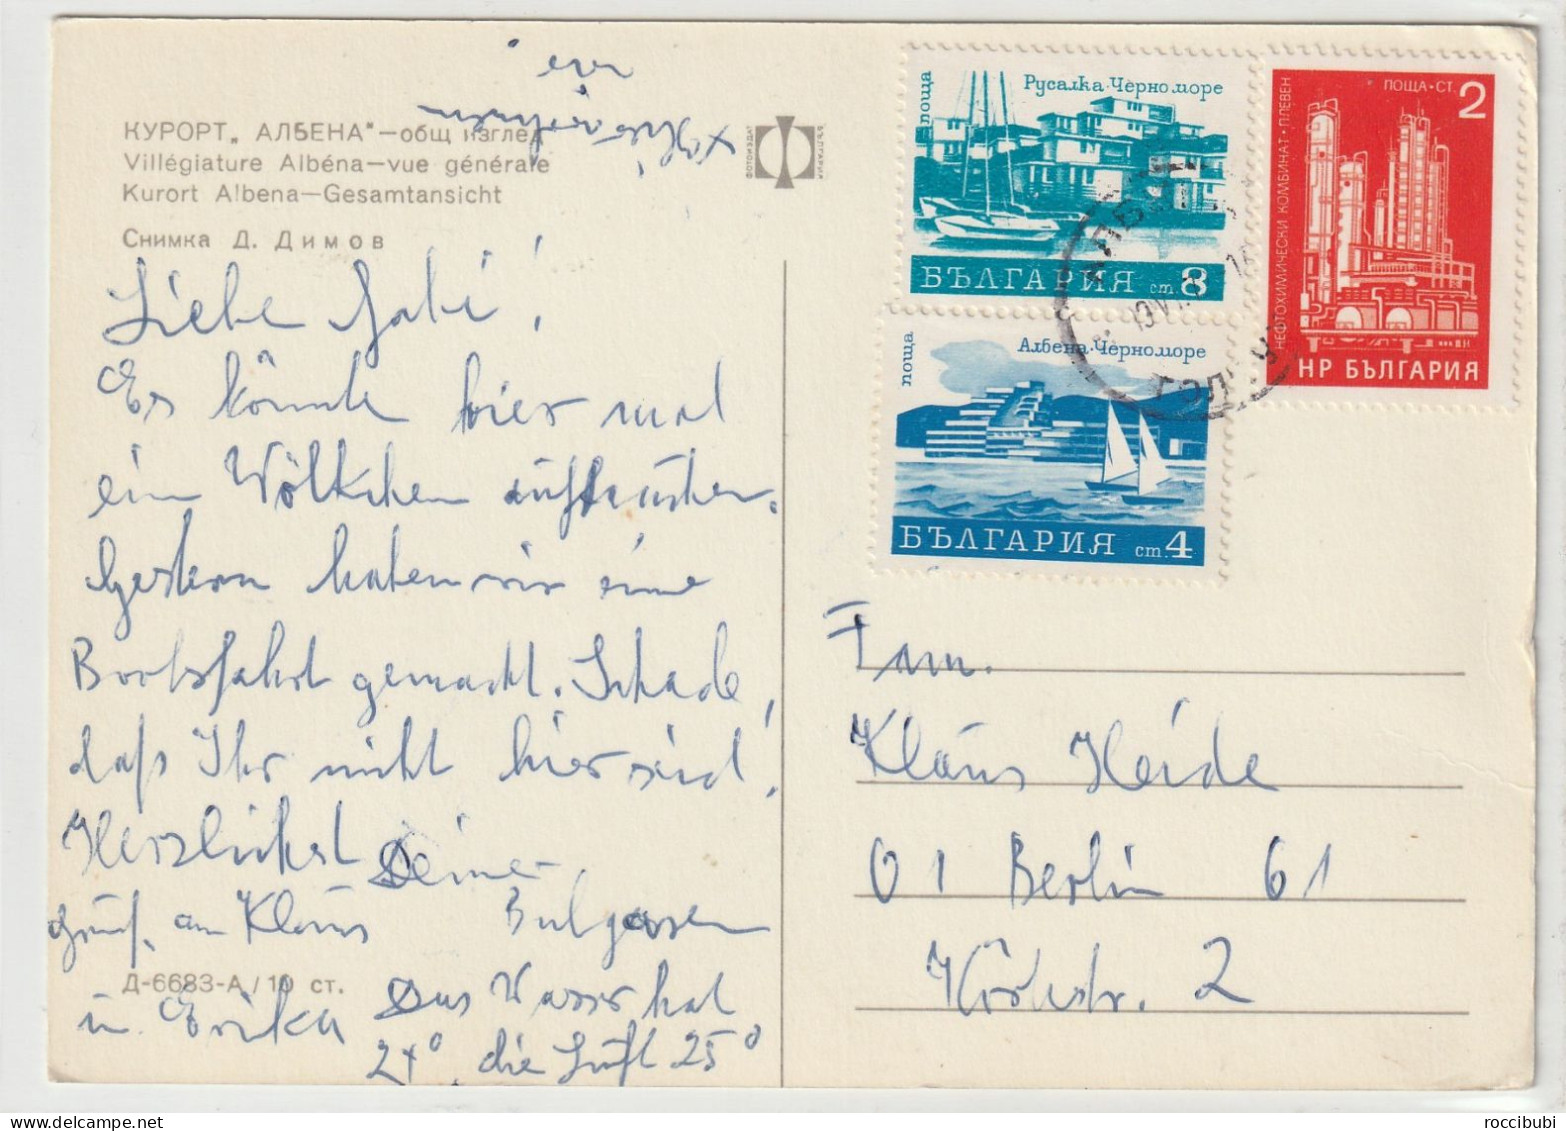 КУРОРТ „АЛБЕНА" — общ изглед
Villégiature Albéna—vue générale
Kurort Albena—Gesamtansicht
Снимка Д. Димов
ФОТОИЗДАТ
БЪЛГАРИЯ
Liebe Gabi!
Es könnte hier mal
ein Wölkchen auftauchen.
Gestern haben wir eine
Bootsfahrt gemacht. Schade,
daß Ihr nicht hier seid!
Herzlichst Deine
Gruß an Klaus
u. Erika
Bulgaren
Das Wasser hat
24°, die Luft 25°
Д-6683-А / 10 ст.
поща
Русалка·Черно море
БЪЛГАРИЯ ст 8
поща
Албена·Черно море
БЪЛГАРИЯ ст. 4
ПОЩА·СТ. 2
НЕФТОХИМИЧЕСКИ КОМБИНАТ·ПЛЕВЕН
НР БЪЛГАРИЯ
Fam.
Klaus Heide
01 Berlin 61
2
roccibubi